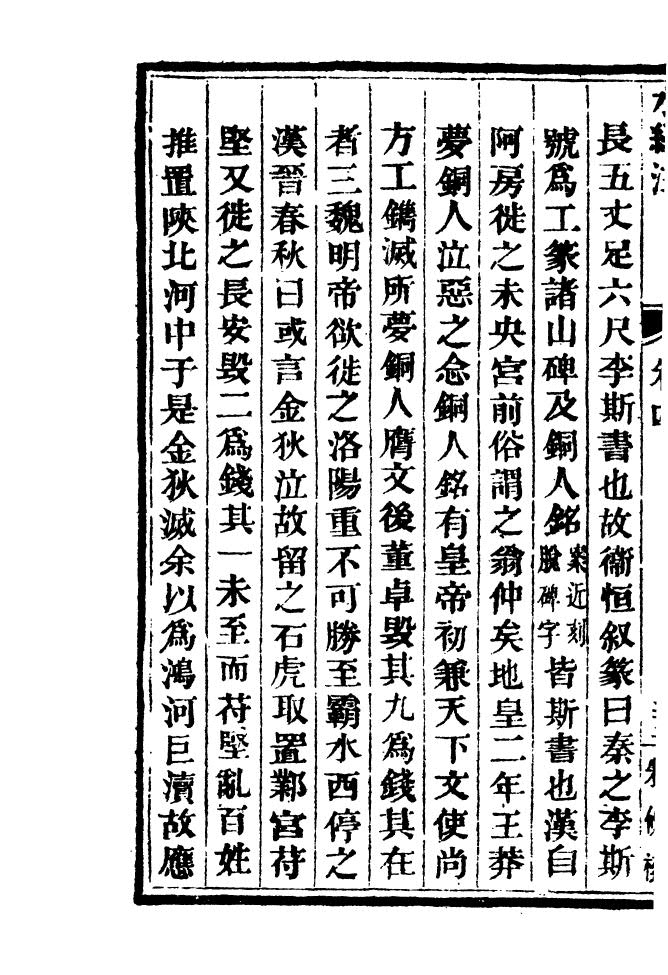 水經注 卷四
長五丈足六尺李斯書也故衞恒叙篆曰秦之李斯
號爲工篆諸山碑及銅人銘案近刻脫碑字皆斯書也漢自
阿房徙之未央宮前俗謂之翁仲矣地皇二年王莽
夢銅人泣惡之念銅人銘有皇帝初兼天下文使尚
方工鐫滅所夢銅人膺文後董卓毀其九爲錢其在
者三魏明帝欲徙之洛陽重不可勝至霸水西停之
漢晉春秋曰或言金狄泣故留之石虎取置鄴宮苻
堅又徙之長安毀二爲錢其一未至而苻堅亂百姓
推置陝北河中于是金狄滅余以爲鴻河巨瀆故應